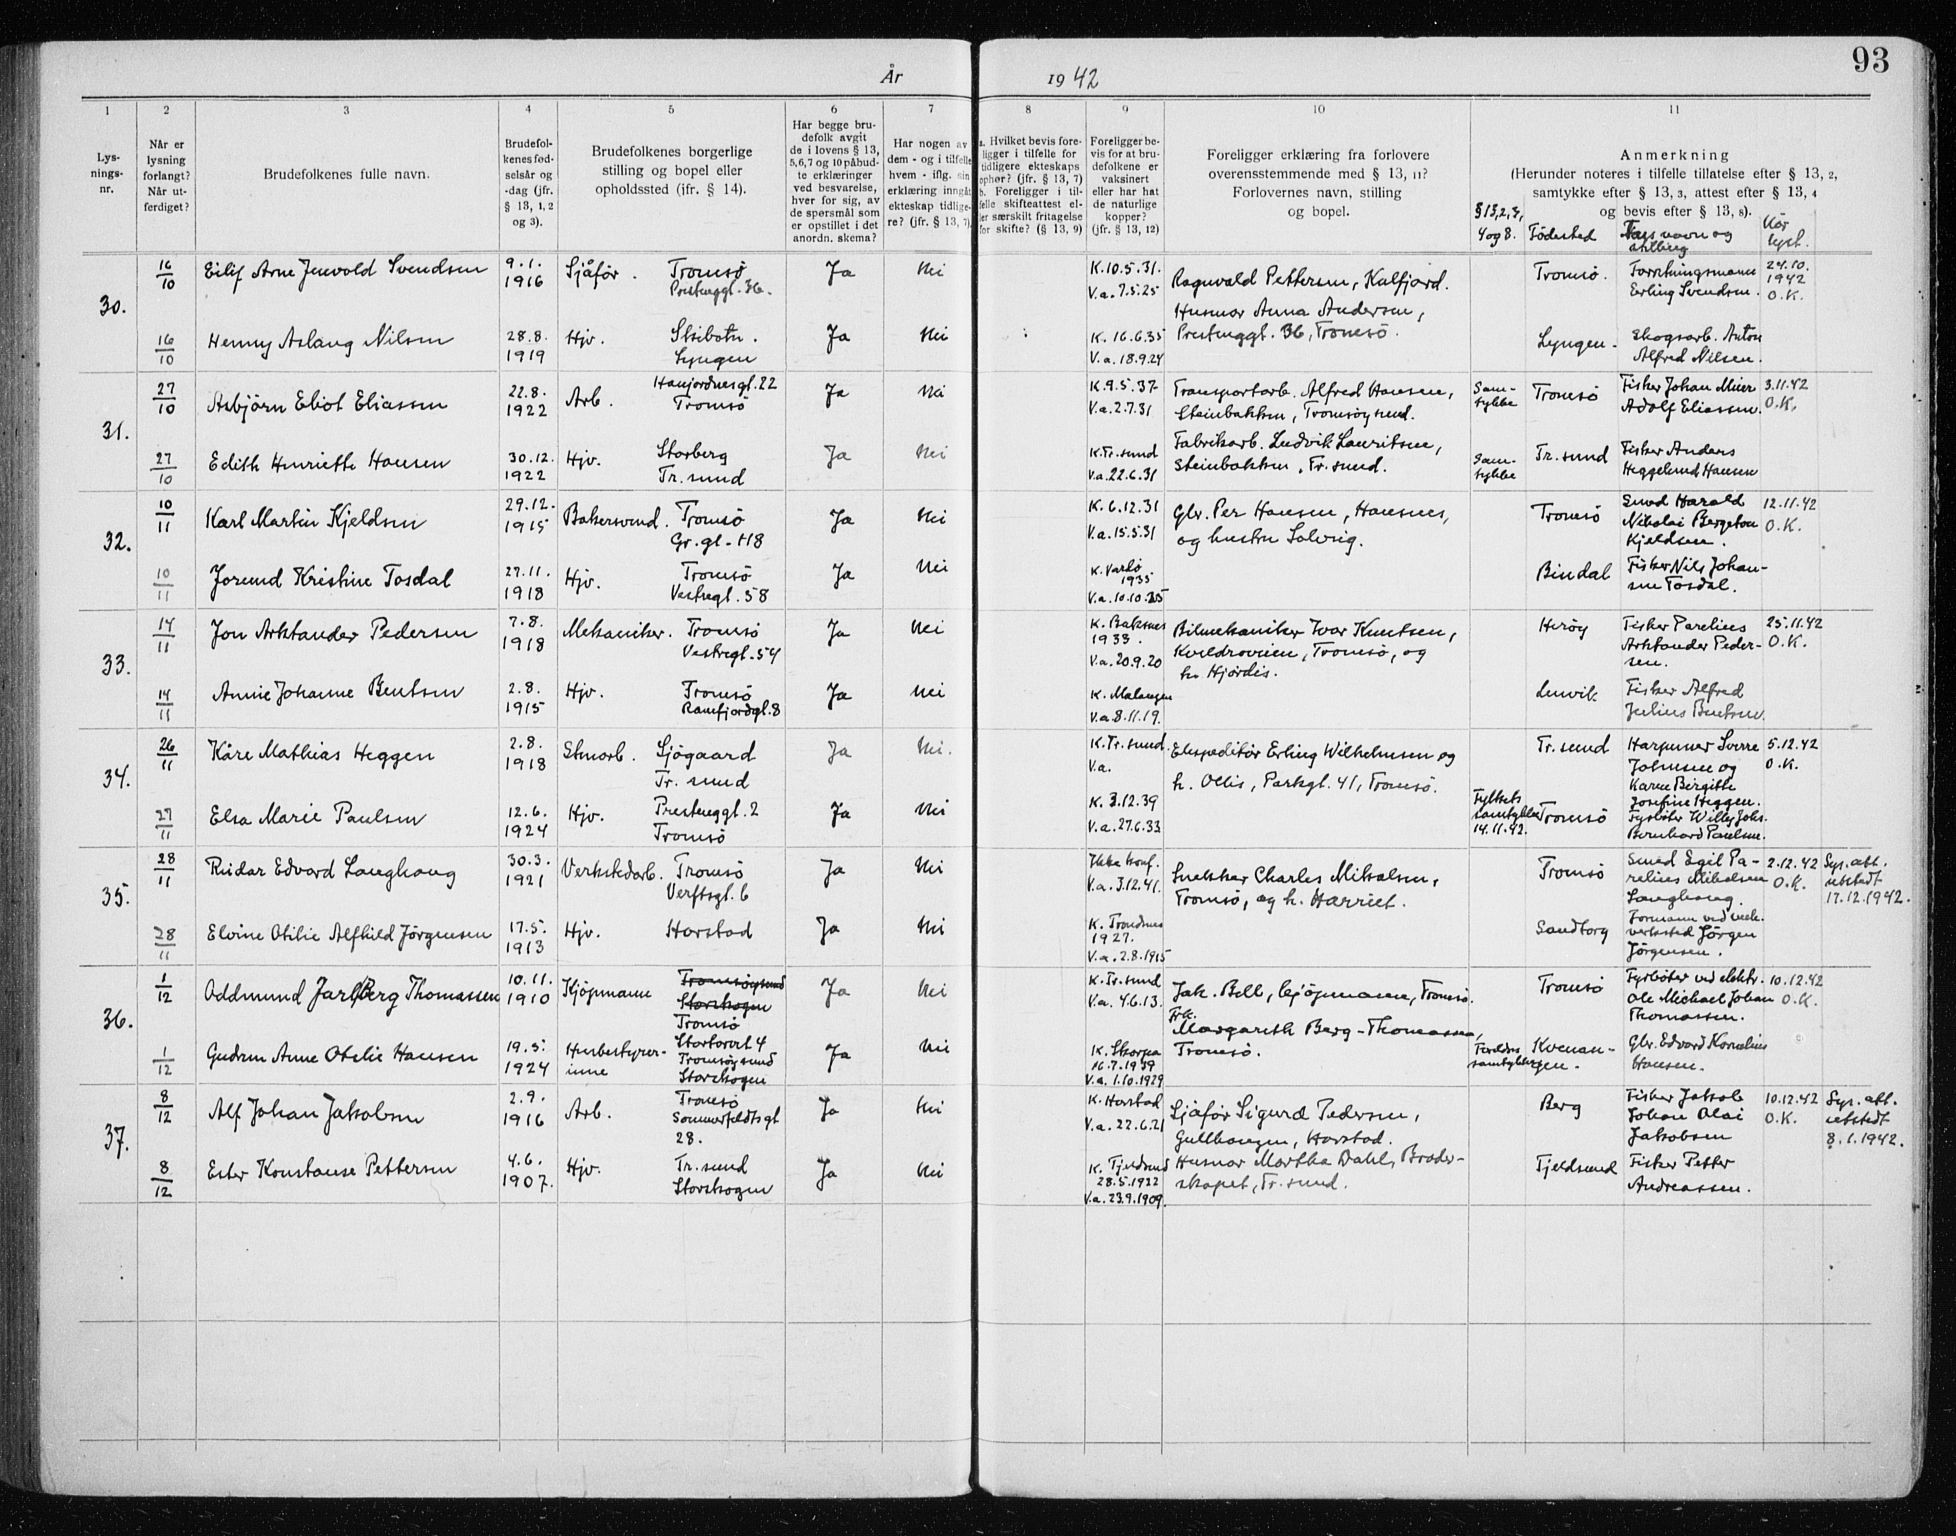 År 1942
93
1 2 3 4 5 6 7 8 9 10 11
Lys-
nings-
nr.
Når er
lysning
forlangt?
Når ut-
ferdiget?
Brudefolkenes fulle navn.
Brudefol-
kenes fød-
selsår og
-dag (jfr.
§ 13, 1, 2
og 3).
Brudefolkenes borgerlige
stilling og bopel eller
opholdssted (jfr. § 14).
Har begge bru-
defolk avgit
de i lovens § 13,
5,6,7 og 10 påbud-
te erklæringer
ved besvarelse,
hver for sig, av
de spørsmål som
er opstillet i det
anordn. skema?
Har nogen av
dem - og i tilfelle
hvem - iflg. sin
erklæring inngåt
ekteskap tidlige-
re? (jfr. § 13, 7).
a. Hvilket bevis fore-
ligger i tilfelle for
tidligere ekteskaps
ophør? (jfr. § 13, 7)
b. Foreligger i til-
felle skifteattest el-
ler særskilt fritagelse
for skifte? (§ 13, 9)
Foreligger be-
vis for at bru-
defolkene er
vaksinert
eller har hat
de naturlige
kopper?
(jfr. § 13, 12)
Foreligger erklæring fra forlovere
overensstemmende med § 13, 11?
Forlovernes navn, stilling
og bopel.
Anmerkning
(Herunder noteres i tilfelle tillatelse efter § 13, 2,
samtykke efter § 13, 3, attest efter § 13, 4
og bevis efter § 13, 8).
§ 13,2,3,
4 og 8.
Fødested
Fars navn og
stilling
Når
lyst.
30.
16/10 Eilif Arne Jenvold Svendsen 9.1. 1916 Sjåfør. Tromsö Prestenggt. 36. Ja Nei
K. 10.5.31. V.a. 7.5.25
Ragnvald Pettersen, Kalfjord.
Husmor Anna Andersen,
Prestenggt. 36, Tromsö.
Tromsö. Forretningsmann Erling Svendsen. 24.10. 1942 O.K.
16/10 Henny Aslaug Nilsen 28.8. 1919 Hjv. Skibotn. Lyngen Ja Nei
K. 16.6.35 V.a. 18.9.24
Lyngen. Skogsarb. Anton Alfred Nilsen.
31.
27/10 Asbjörn Eliot Eliassen 22.8. 1922 Arb. Hansjordnesgt. 22 Tromsö Ja Nei
K. 9.5.37 V.a. 2.7.31
Transportarb. Alfred Hansen,
Steinbakken, Tromsöysund.
Fabrikarb. Ludvik Lauritsen,
Steinbakken, Tr.sund.
Sam-
tykke
Tromsö Fisker Johan Meier Adolf Eliassen. 3.11.42 O.K.
27/10 Edith Henriette Hansen 30.12. 1922 Hjv. Storberg Tr.sund Ja Nei
K. Tr.sund V.a. 22.6.31
Sam-
tykke
Tr.sund Fisker Anders Heggelund Hansen
32.
10/11 Karl Martin Kjeldsen 29.12. 1915 Bakersvend. Tromsö Gr.gt. 118 Ja Nei
K. 6.12.31 V.a. 15.5.31
Gbr. Per Hansen, Hansnes,
og hustru Solveig.
Tromsö Smed Harald Nikolai Bergeton Kjeldsen. 12.11.42 O.K.
10/11 Jorund Kristine Tosdal 27.11. 1918 Hjv. Tromsö Vestregt. 58 Ja Nei
K. Vardö 1935 V.a. 10.10.35
Bindal Fisker Nils Johan-
sen Tosdal.
33.
14/11 Jon Arktander Pedersen 7.8. 1918 Mekaniker. Tromsö Vestregt. 54 Ja Nei
K. Baksnes 1933. V.a. 20.9.20
Bilmekaniker Ivar Knutsen,
Kveldroveien, Tromsö, og
h. Hjördis.
Heröy Fisker Parelius Arktander Peder-
sen. 25.11.42 O.K.
14/11 Annie Johanne Bentsen 2.8. 1915 Hjv. Tromsö Ramfjordgt. 8 Ja Nei
K. Malangen V.a. 8.11.19.
Lenvik Fisker Alfred Julius Bentsen.
34.
26/11 Kåre Mathias Heggen 2.8. 1918 Stenarb. Sjögaard Tr.sund Ja Nei.
K. Tr.sund. V.a.
Ekspeditör Erling Wilhelmsen og
h. Ollis, Parkgt. 41, Tromsö.
Tr.sund Harpuner Sverre Johnsen og Karen Birgitte Josefine Heggen. 5.12.42 O.K.
27/11 Elsa Marie Paulsen 12.6. 1924 Hjv. Prestenggt. 2 Tromsö Ja Nei
K. 3.12.39 V.a. 27.6.33
Fylkets samtykke 14.11.42.
Tromsö Fyrböter Willy Johs. Bernhard Paulsen.
35.
28/11 Reidar Edvard Langhaug 30.3. 1921 Verkstedarb. Tromsö Verftsgt. 6 Ja Nei
Ikke konf. V.a. 3.12.41.
Snekker Charles Mikalsen,
Tromsö, og h. Harriet.
Tromsö Smed Egil Pa-
relius Mikalsen Langhaug. 2.12.42 O.K. Lys.att. utstedt 17.12.1942.
28/11 Elvine Otilie Alfhild Jörgensen 17.5. 1913 Hjv. Harstad Ja Nei
K. Trondenes 1927. V.a. 2.8.1915
Sandtorg Formann ved mek. verksted Jörgen Jörgensen.
36.
1/12 Oddmund Jarl Berg Thomassen 10.11. 1910 Kjöpmann Tromsöysund Storskogen Tromsö Stortorvt 4 Ja Nei
K. Tr.sund V.a. 4.6.13.
Jak. Bell, kjöpmann, Tromsö.
Frk.
Margareth Berg-Thomassen,
Tromsö.
Tromsö Fyrböter ved elektr. Ole Michael Johan Thomassen. 10.12.42 O.K.
1/12 Gudrun Anne Otelie Hansen 19.5. 1924 Husbestyrer-
inne Tromsöysund Storskogen Ja Nei
K. Skorpa 16.7.1939 V.a. 1.10.1929
Foreldres samtykke
Kvenan-
gen. Gbr. Edvard Kornelius Hansen.
37.
8/12 Alf Johan Jakobsen 2.9. 1916 Arb. Tromsö Sommerfeldtsgt 28. Ja Nei
K. Harstad V.a. 22.6.21
Sjåför Sigurd Pedersen,
Gullhaugen, Harstad.
Husmor Martha Dahl, Broder-
skapet, Tr.sund.
Berg Fisker Jakob Johan Olai Jakobsen 10.12.42 O.K. Lys.att. utstedt 8.1.1942.
8/12 Ester Konstanse Pettersen 4.6. 1907. Hjv. Tr.sund Storskogen Ja Nei
K. Fjeldsund 28.5.1922 V.a. 23.9.1909.
Fjeldsund Fisker Petter Andreassen.